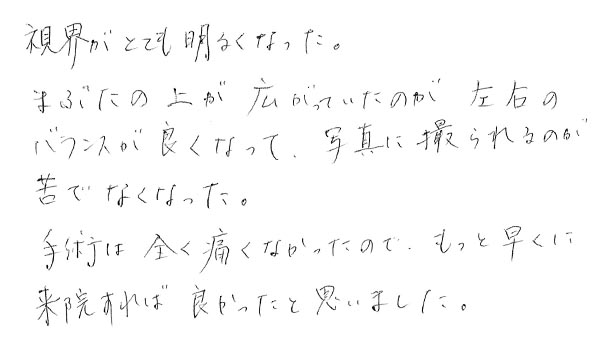 視界がとても明るくなった。
まぶたの上が広がっていたのが左右の
バランスが良くなって、写真に撮られるのが
苦でなくなった。
手術は全く痛くなかったので、もっと早くに
来院すれば良かったと思いました。